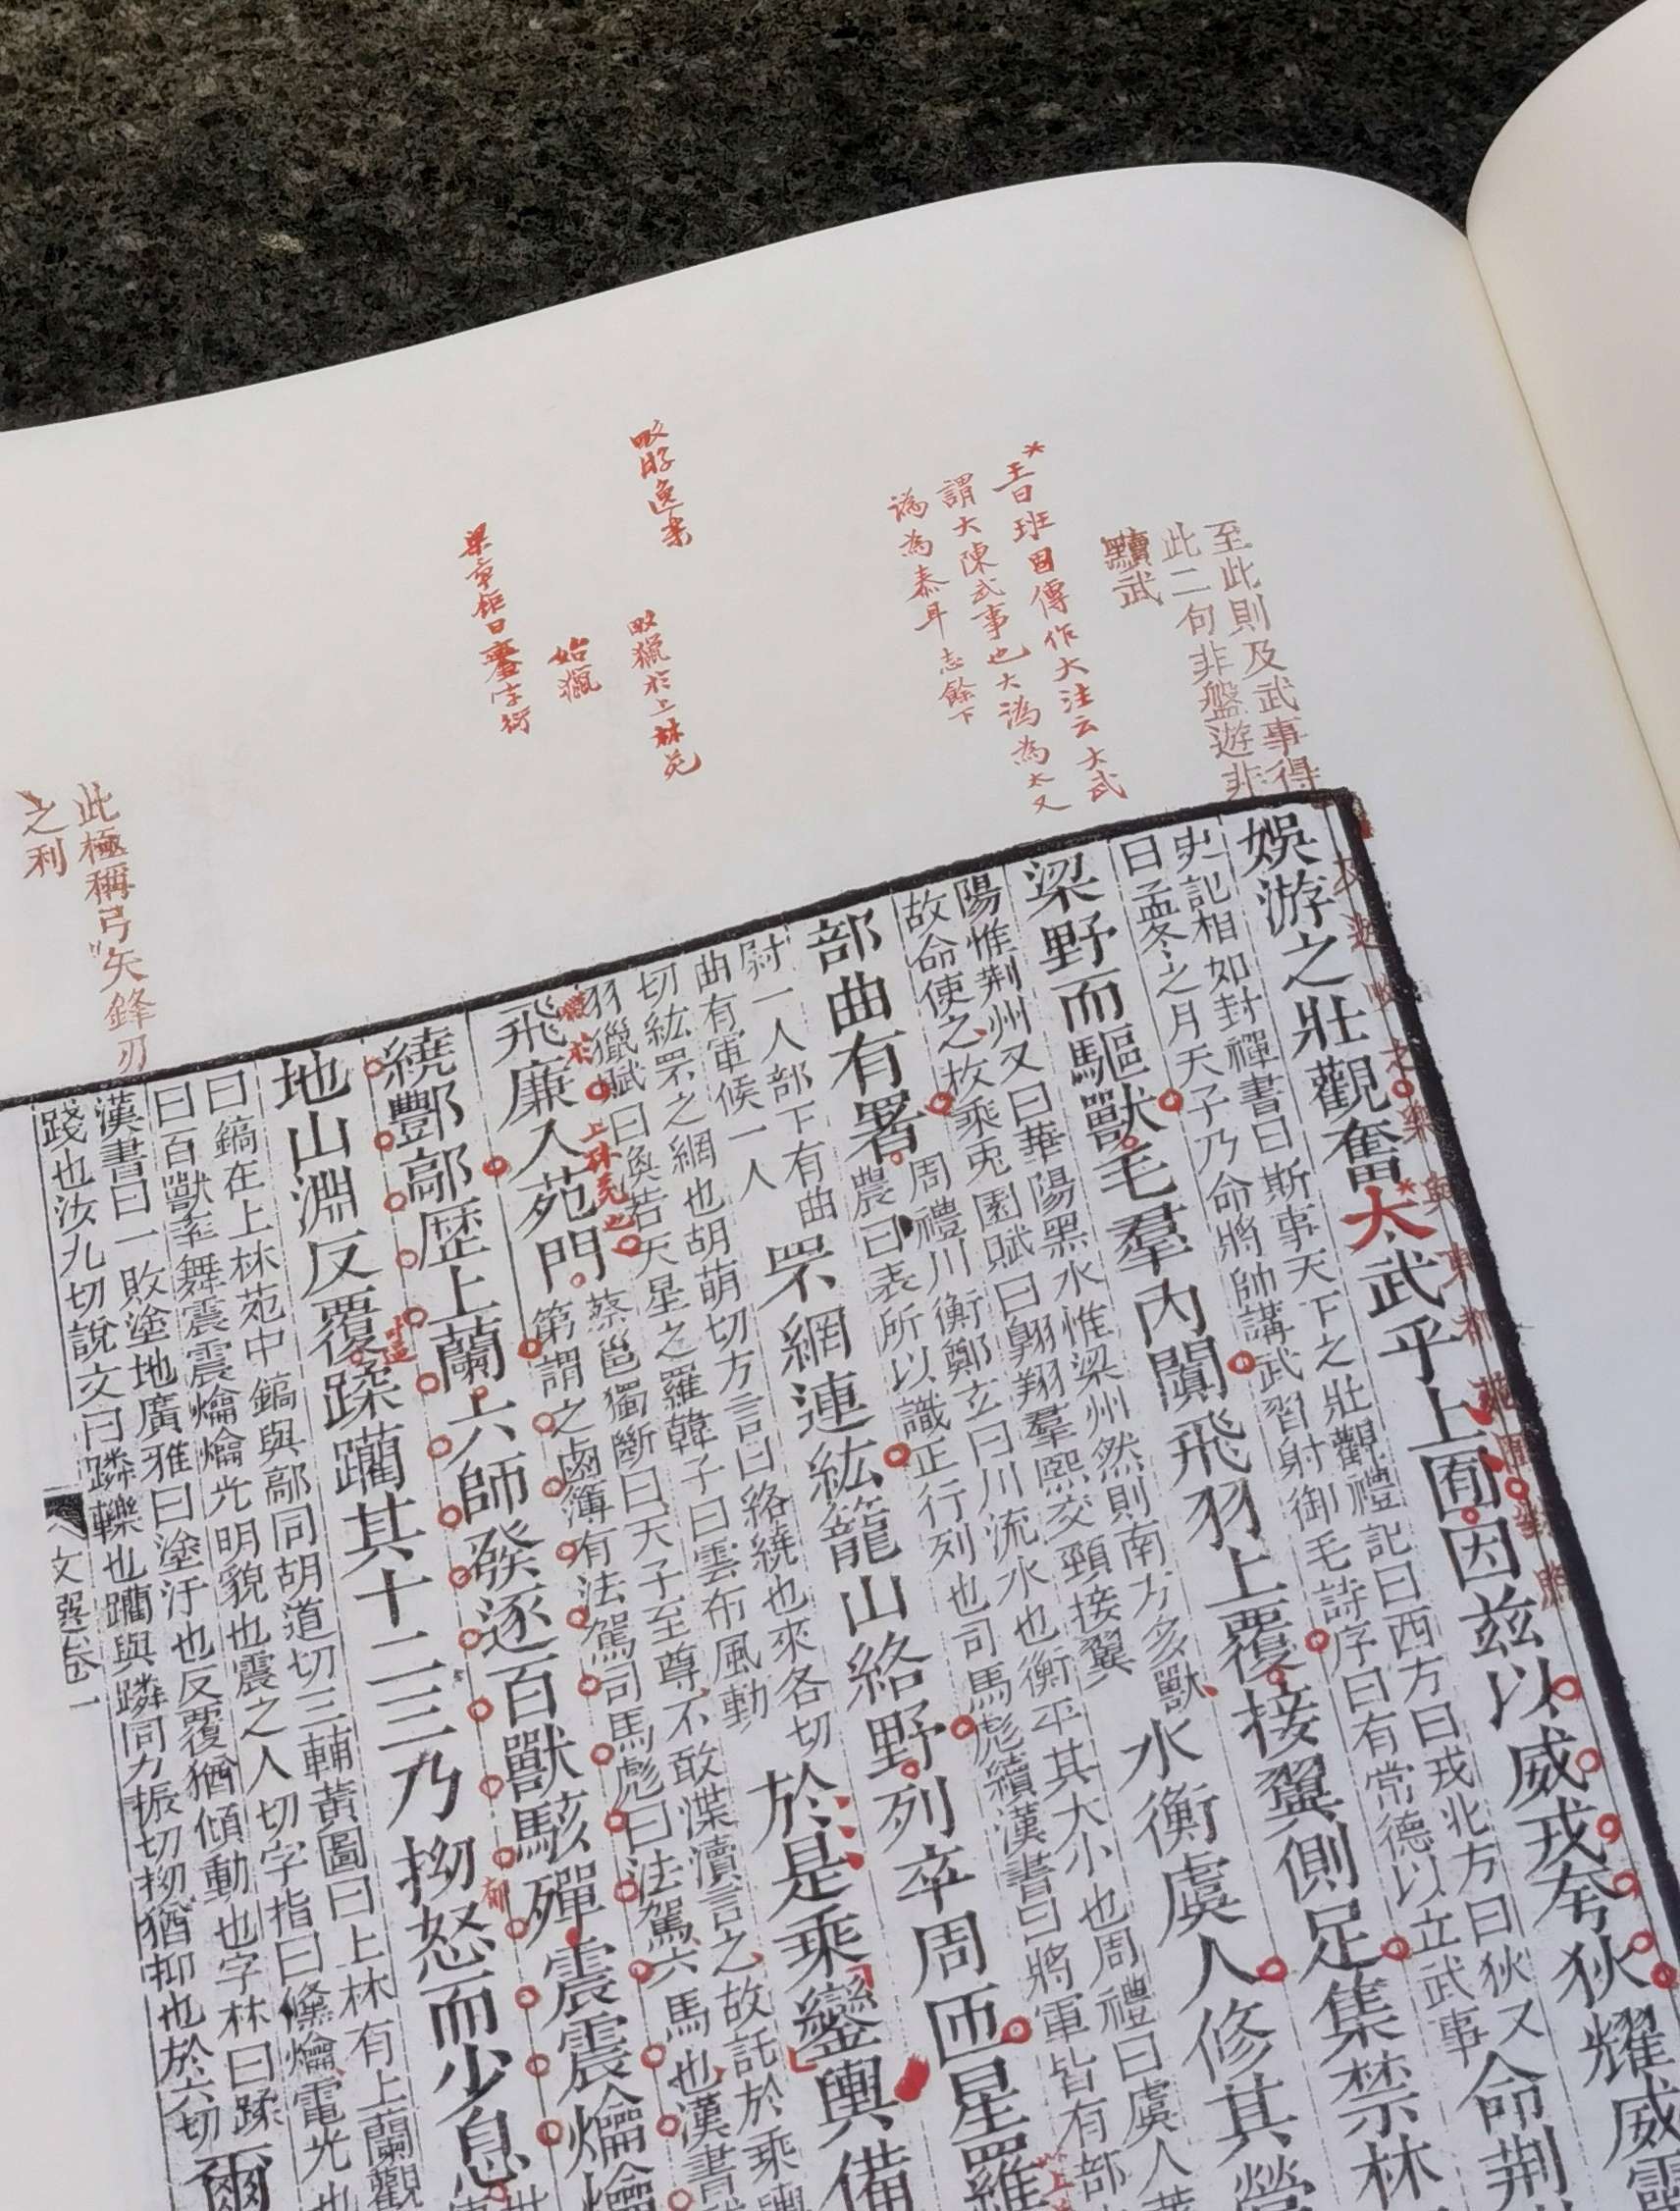 至此則及武事得
此二句非盤遊非
黷武
王曰班固傳作大注云大武
謂大陳武事也大譌為太又
譌為泰耳 志餘下
畋獵於上林苑
始獵
梁章鉅曰 字衍
此極稱弓矢鋒刃
之利
娛游之壯觀奮大武乎上囿因茲以威戎夸狄耀威靈
史記相如封禪書曰斯事天下之壯觀禮記曰西方曰戎北方曰狄又
曰孟冬之月天子乃命將帥講武習射御毛詩序曰有常德以立武事
命荆
梁野而驅獸毛羣內闐飛羽上覆接翼側足集禁林
陽惟荆州又曰華陽黑水惟梁州然則南方多獸
故命使之枚乘兎園賦曰翺翔羣熙交頸接翼
水衡虞人修其營
部曲有署
周禮川衡鄭玄曰川流水也衡平其大小也周禮曰虞人萊
農曰表所以識正行列也司馬彪續漢書曰將軍皆有部
罘網連紘籠山絡野列卒周匝星羅
尉一人部下有曲
曲有軍候一人
切紘罘之網也胡萌切方言曰絡繞也來各切
羽獵賦曰奐若天星之羅韓子曰雲布風動
於是乘鑾輿備
飛廉入苑門
蔡邕獨斷曰天子至尊不敢渫瀆言之故託於乘輿
第謂之鹵簿有法駕司馬彪曰法駕六馬也漢書
繞酆鄗歷上蘭六師發逐百獸駭殫震震爚爚
地山淵反覆蹂躪其十二三乃拗怒而少息
曰鎬在上林苑中鎬與鄗同胡道切三輔黃圖曰上林有上蘭觀
曰百獸率舞震震爚爚光明貌也震之人切字指曰儵爚電光也
漢書曰一敗塗地廣雅曰塗汙也反覆猶傾動也字林曰蹂
踐也汝九切說文曰蹸轢也躪與蹸同力振切拗猶抑也於六切
爾
文選卷一